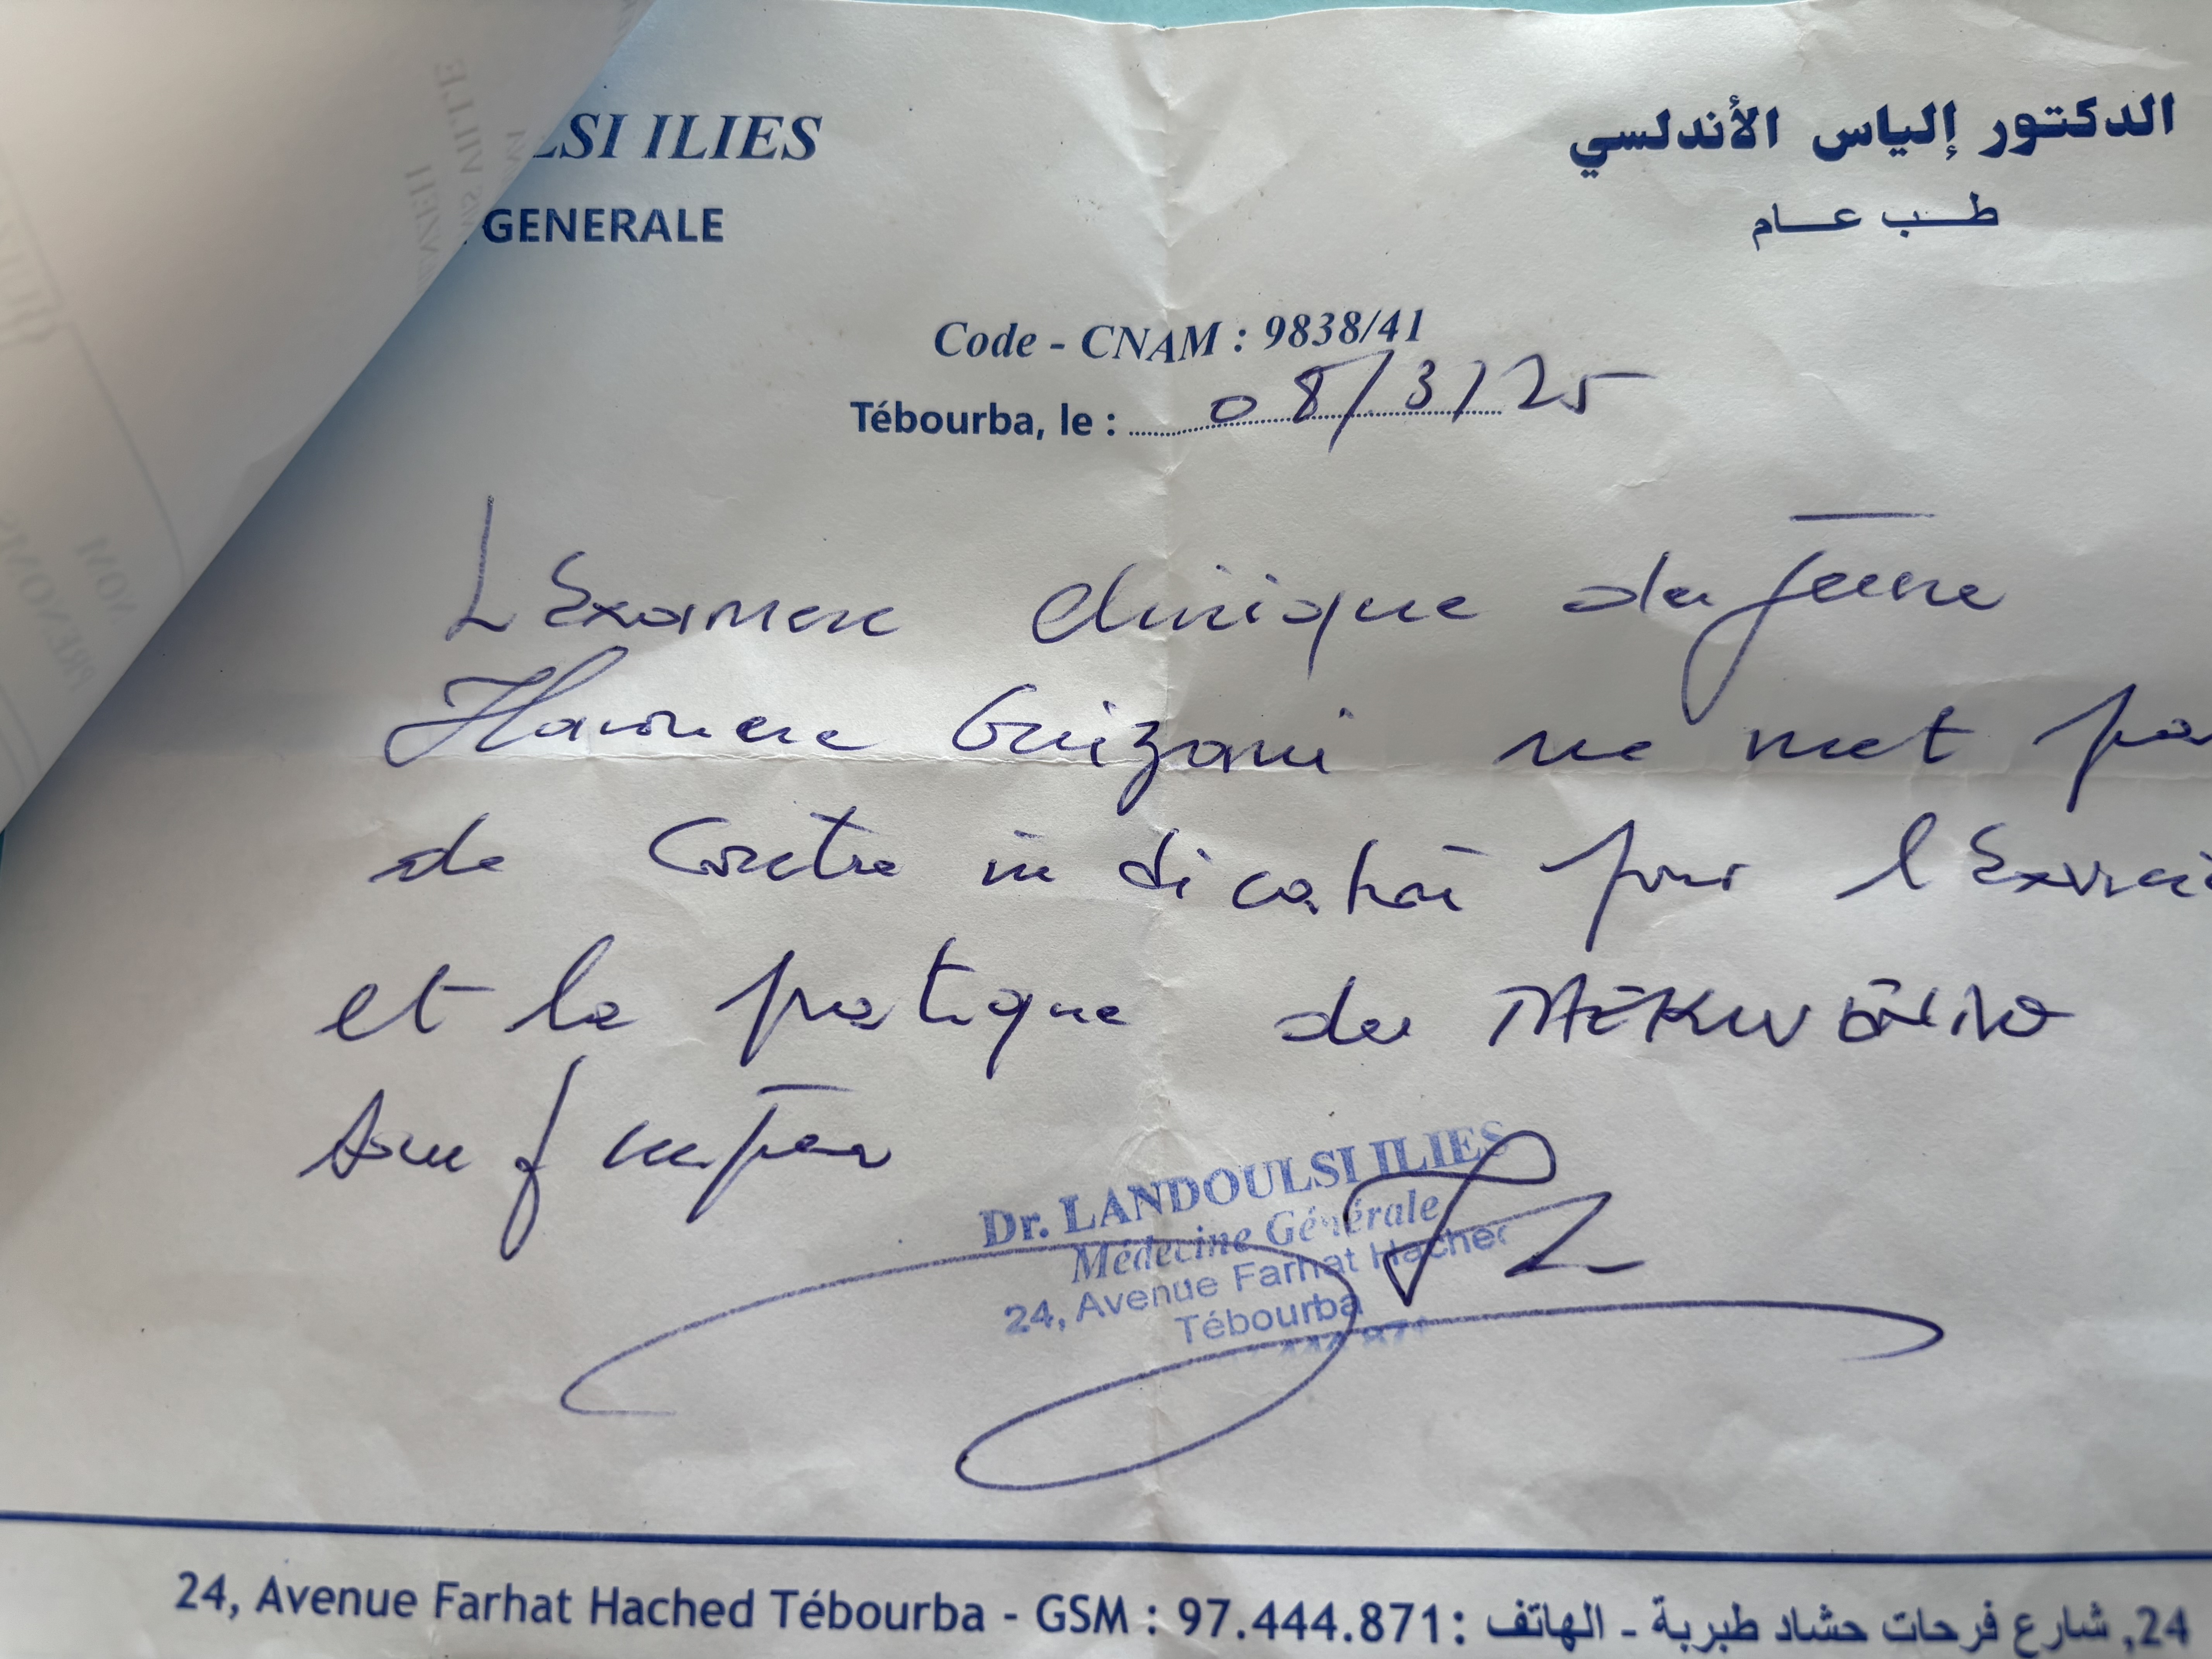 LSI ILIES
GENERALE
الدكتور إلياس الأندلسي
طب عام
Code - CNAM : 9838/41
Tébourba, le : 08/3/25
L'Examen clinique du jeune
Guizani ne met pa
de contre indication pour l'Exercic
et la pratique du TAEKWONDO
Dr. LANDOULSI ILIES
Médecine Générale
24, Avenue Farhat Hached
Tébourba
444 871
24, Avenue Farhat Hached Tébourba - GSM : 97.444.871 : 24, شارع فرحات حشاد طبربة - الهاتف
NOM
PRENOMS
VILLE